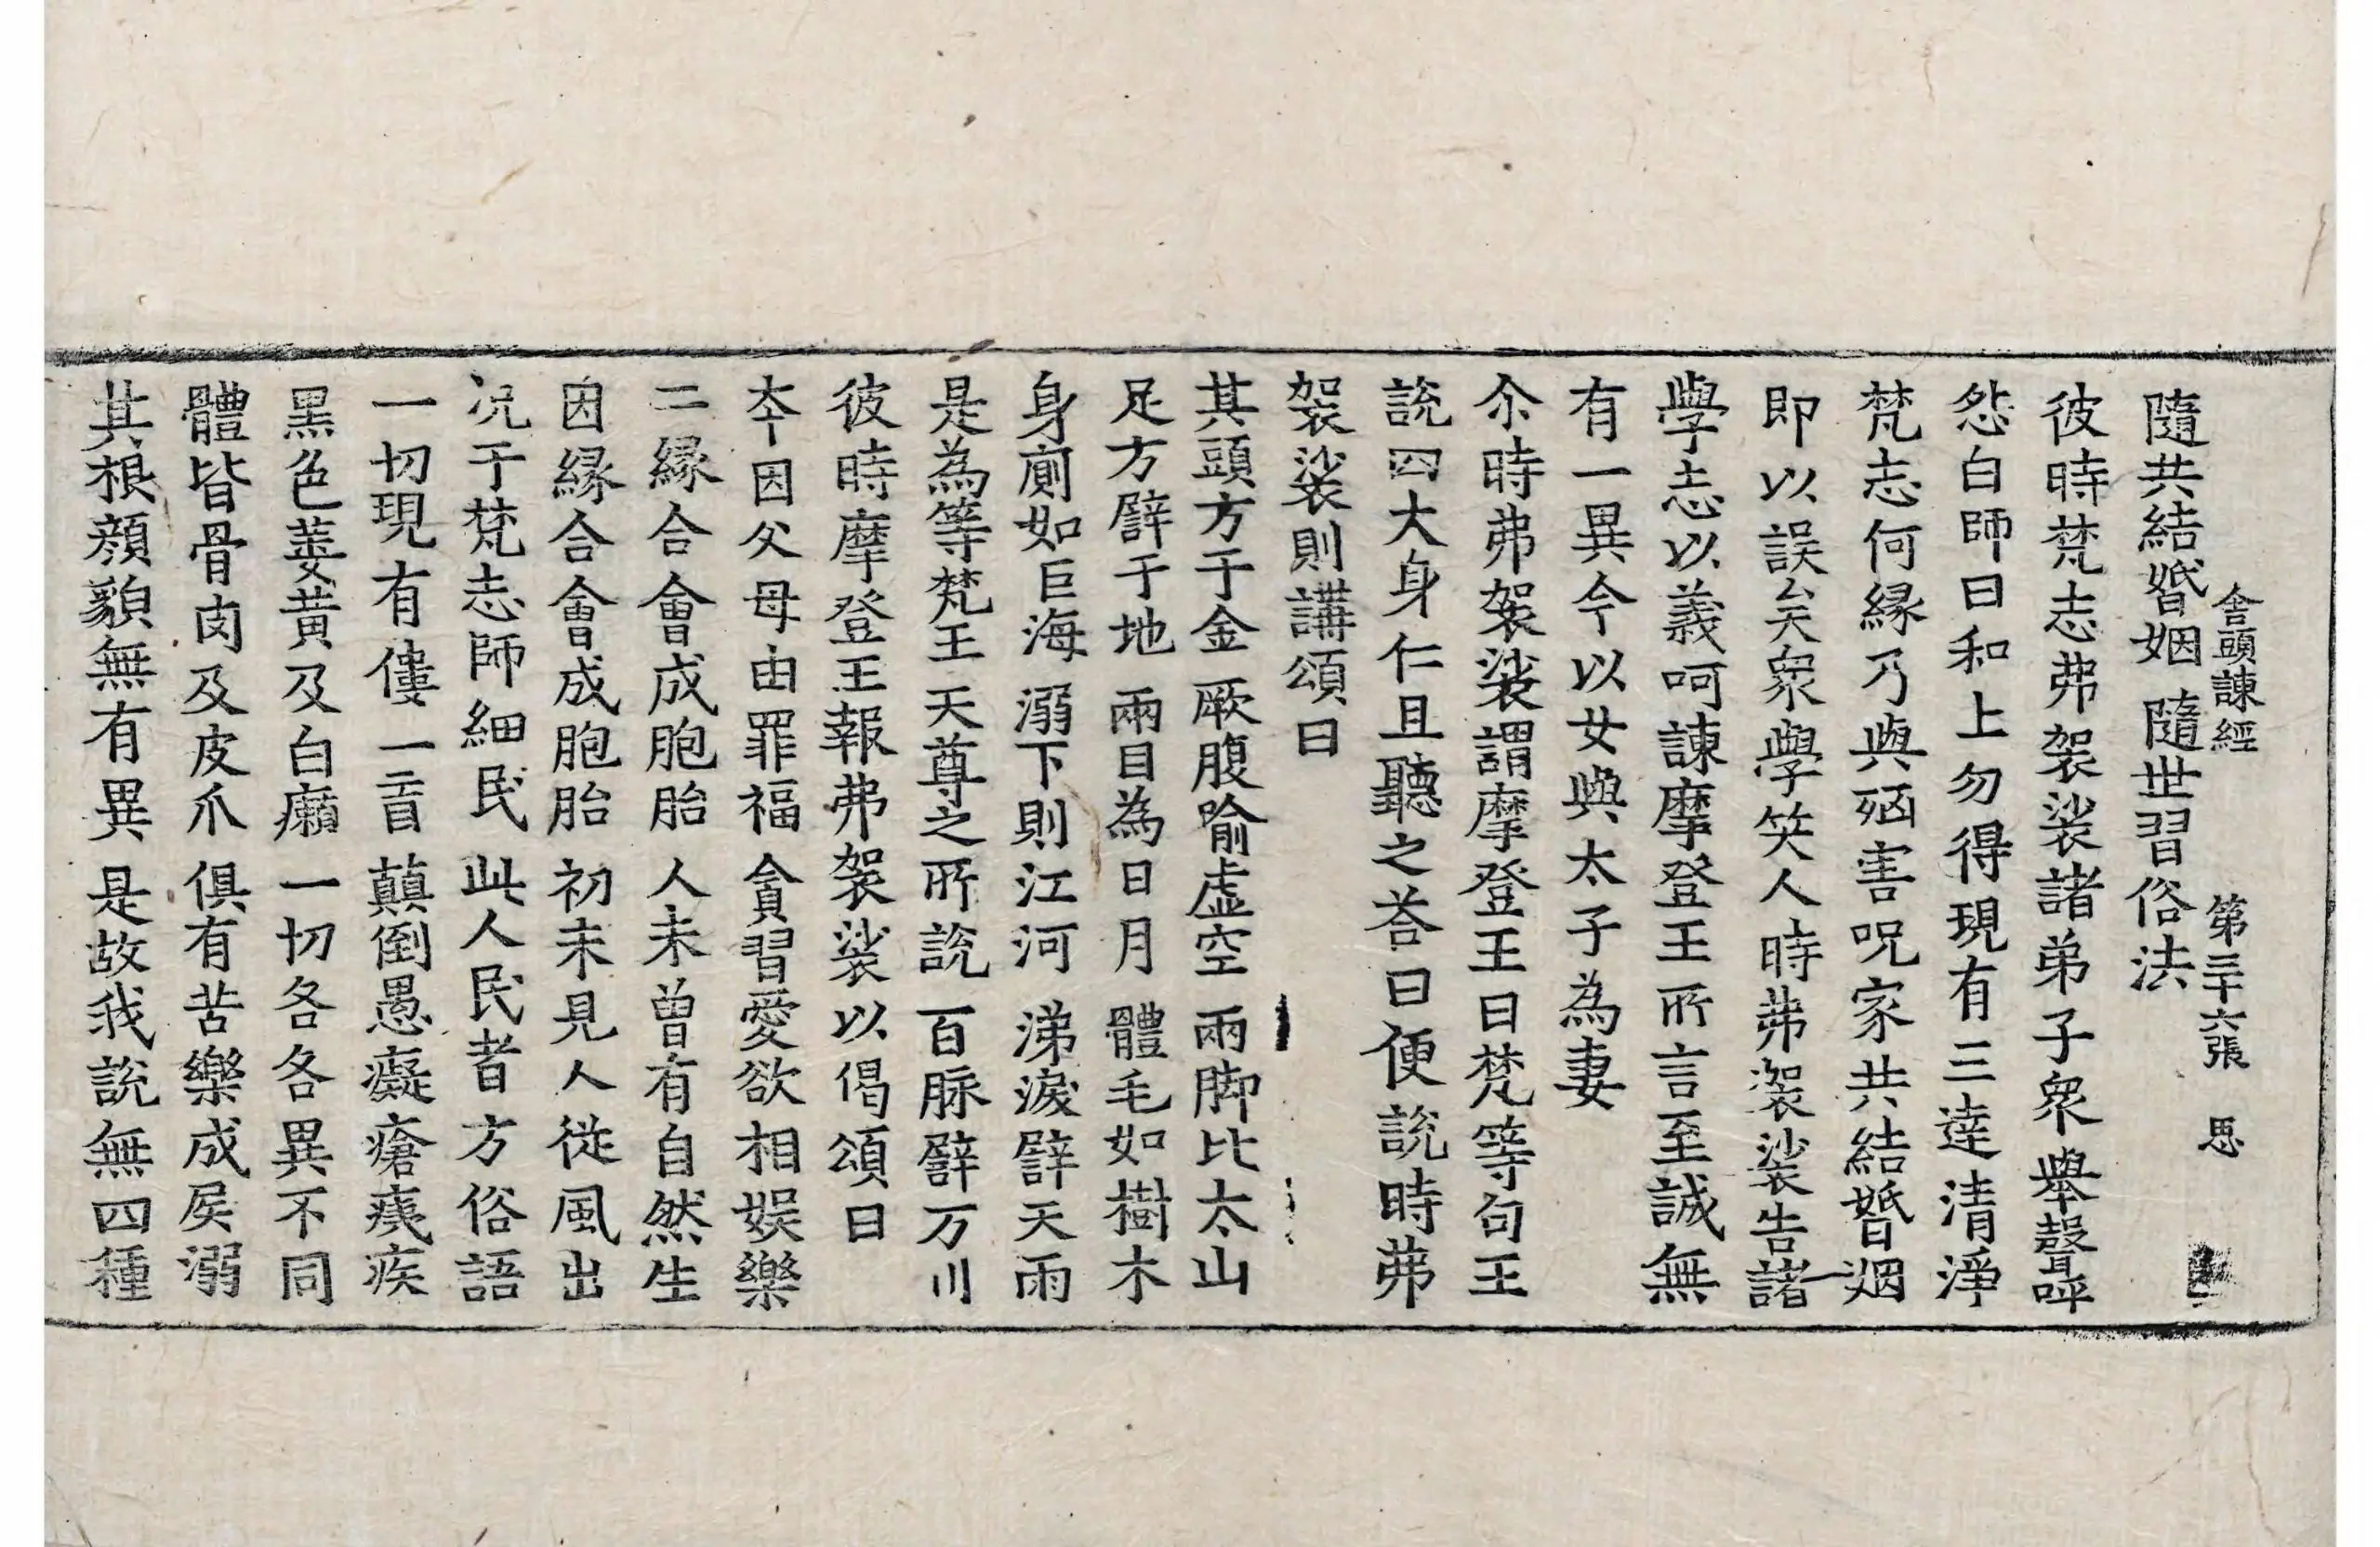 隨共結婚姻 隨世習俗法
舍頭諫經 第三十六張 思
彼時梵志弗袈裟諸弟子衆舉聲呼
怨白師曰和上勿得現有三達清淨
梵志何縁乃與㐫害呪家共結婚姻
即以誤矣衆學笑人時弗袈裟告諸
學志以義呵諫摩登王所言至誠無
有一異今以女與太子為妻
尒時弗袈裟謂摩登王曰梵等句王
說四大身仁且聽之荅曰便說時弗
袈裟則講頌曰
其頭方于金 厥腹喻虛空 兩脚比太山
足方譬于地 兩目為日月 體毛如樹木
身廁如巨海 溺下則江河 涕淚譬天雨
是為等梵王 天尊之所說 百脉譬万川
彼時摩登王報弗袈裟以偈頌曰
夲因父母由罪福 貪習愛欲相娱樂
二縁合會成胞胎 人未曾有自然生
因縁合會成胞胎 初未見人從風出
况于梵志師細民 此人民者方俗語
一切現有僂一盲 顛倒愚癡瘡痍疾
黑色萎黃及白癩 一切各各異不同
體皆骨肉及皮爪 俱有苦樂成𡱁溺
其根顔貌無有異 是故我說無四種